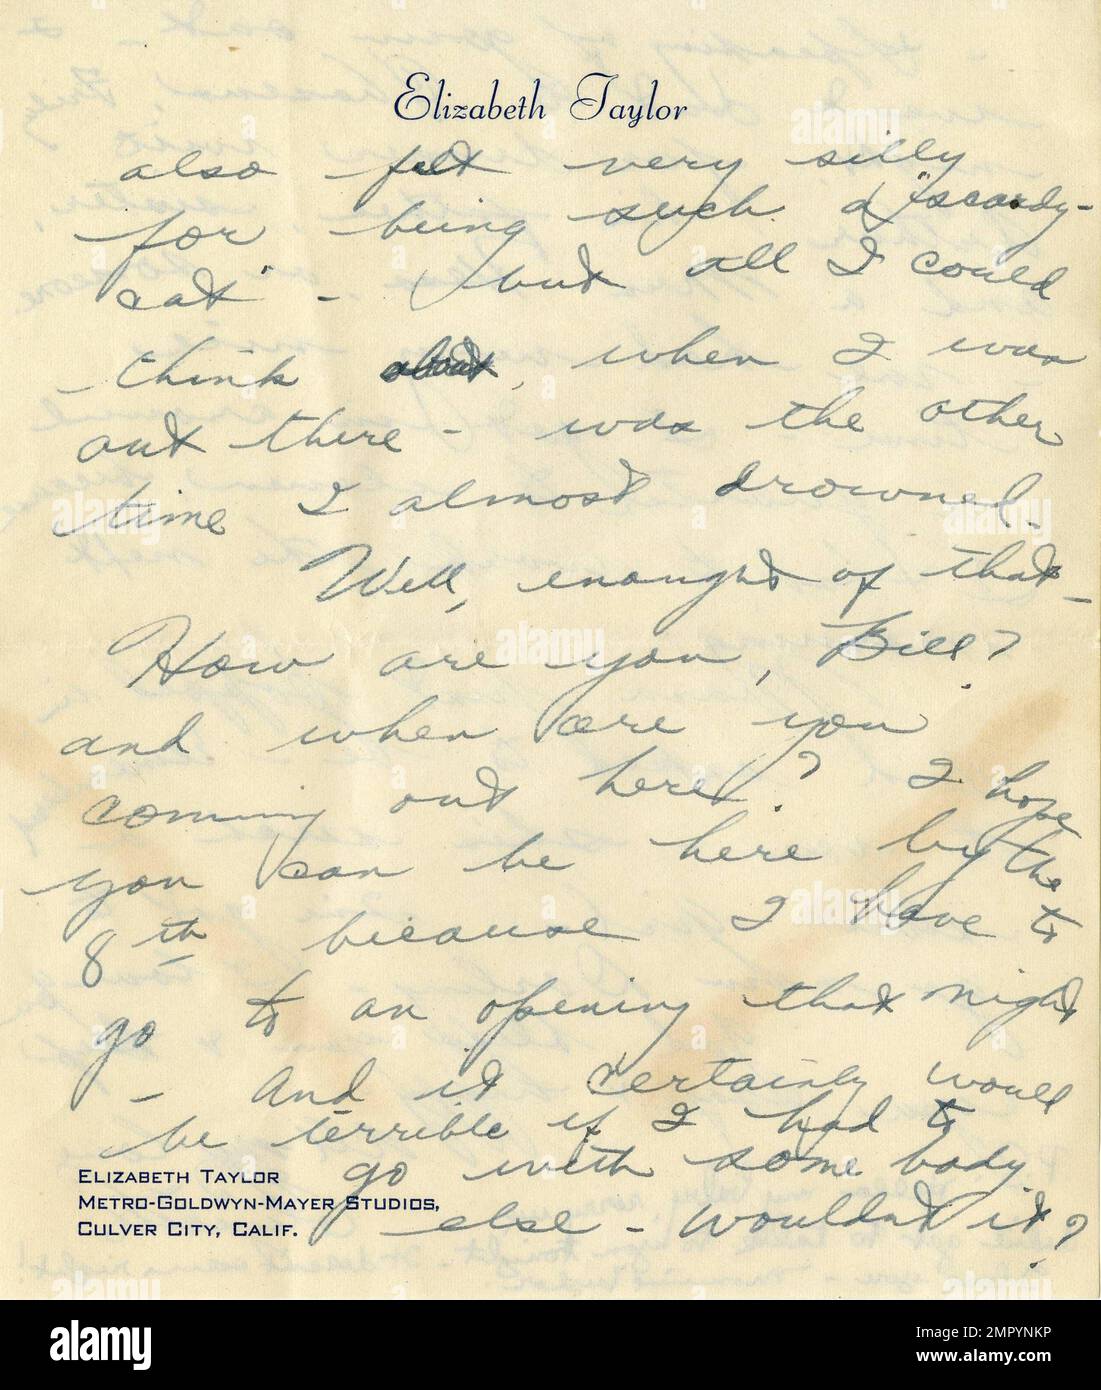 Elizabeth Taylor
also felt very silly
for being such a "scardy-
cat" - but all I could
- think about, when I was
out there - was the other
time I almost drowned.
Well, enought of that -
How are you, Bill?
and when are you
coming out here? I hope
you can be here by the
8th because I have to
go to an opening that night
- and it certainly would
be terrible if I had to
go with some body
else - wouldnt it?
ELIZABETH TAYLOR
METRO-GOLDWYN-MAYER STUDIOS,
CULVER CITY, CALIF.
alamy
Image ID: 2MPYNKP
www.alamy.com